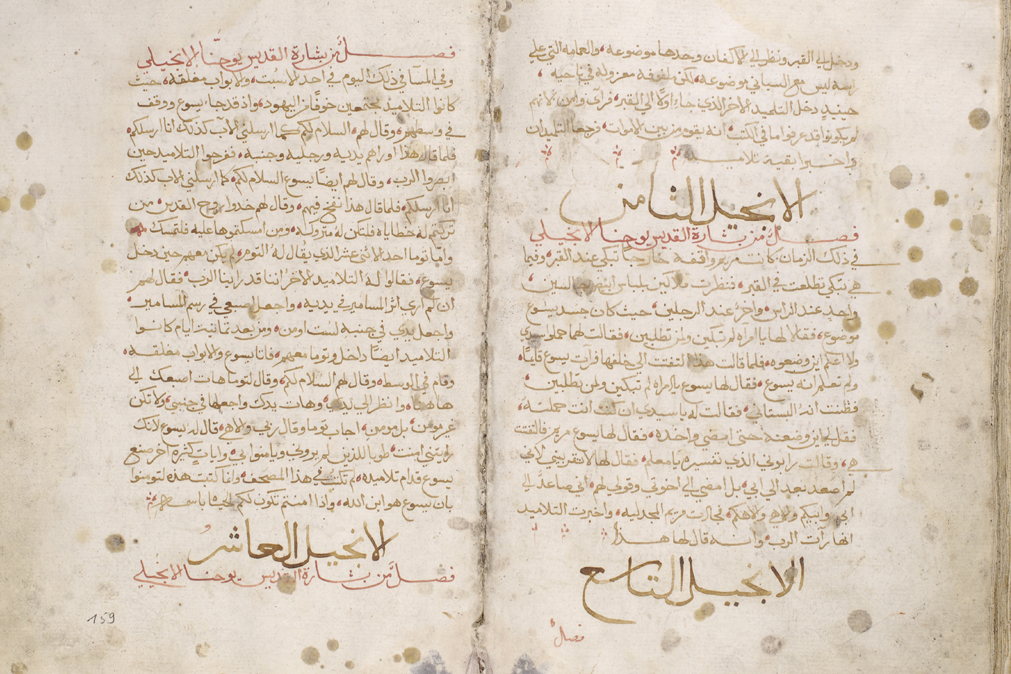 ودخل الى القبر ونظر الى الاكفان وحدها موضوعه والعمامه التي على
راسه ليس مع السباني موضوعه لكن ملفوفه معزوله في ناحيه
حينيذ دخل التلميد الاخر الذي جا اولا الى القبر فراى وامن لانهم
لم يكونوا قد عرفوا ما في الكتب انه يقوم من بين الاموات فرجعا التلميدان
واخبرا بقية تلاميده
الانجيل الثامن
فصل من بشارة القديس يوحنا الانجيلي
في ذلك الزمان كانت مريم واقفه خارجا تبكي عند القبر وفيما
هي تبكي تطلعت في القبر فنظرت ملاكين بلباس ابيض جالسين
واحد عند الراس واخر عند الرجلين حيث كان جسد يسوع
موضوع فقالا لها يا امراه لم تبكين ولمن تطلبين فقالت لهما حملو سيدي
ولا اعلم اين وضعوه فلما قالت هذا التفتت الى خلفها فرات يسوع قايما
ولم تعلم انه يسوع فقال لها يسوع يا امراه لم تبكين ولمن تطلبين
فظنت انه البستاني فقالت له يا سيدي ان كنت انت حملته
فقل لي اين وضعته حتى امضي واخده فقال لها يسوع مريم فالتفتت
هي وقالت رابوني الذي تفسيره يا معلم فقال لها لا تقربيني لاني
لم اصعد بعد الى ابي بل امضي الى اخوتي وقولي لهم اني صاعد الى
ابي وابيكم والاهي والاهكم فجات مريم المجدليه واخبرت التلاميد
انها رات الرب وانه قال لها هذا
الانجيل التاسع
فصل
فصل من بشارة القديس يوحنا الانجيلي
وفي المسا في ذلك اليوم في احد السبت والابواب مغلقه حيث
كانوا التلاميد مجتمعين خوفا من اليهود واذ قد جا يسوع ووقف
في وسطهم وقال لهم السلام لكم كما ارسلني الاب كذلك انا ارسلكم
فلما قال هذا اوراهم يديه ورجليه وجنبه ففرحوا التلاميد حين
ابصروا الرب وقال لهم ايضا يسوع السلام لكم كما ارسلني الاب كذلك
انا ارسلكم فلما قال هذا نفخ فيهم وقال لهم خدوا روح القدس من
تركتم له خطاياه فلتكن له متروكه ومن امسكتموها عليه فلتمسك
واما توما احد الاثني عشر الذي يقال له التوم لم يكن معهم حين دخل
يسوع فقالوا له التلاميد الاخر اننا قد راينا الرب فقال لهم
ان لم ارى اثر المسامير في يديه واجعل اصبعي في رسم المسامير
واجعل يدي في جنبه لست اومن ومن بعد ثمانية ايام كانوا
التلاميد ايضا داخل وتوما معهم فاتا يسوع والابواب مغلقه
وقام في الوسط وقال لهم السلام لكم وقال لتوما هات اصبعك الى
هاهنا وانظر الى يدي وهات يدك واجعلها في جنبي ولا تكن
غير مومن بل مومن اجاب توما وقال ربي والاهي قال له يسوع لانك
رايتني امنت طوبا للذين لم يروني ويامنوا بي وايات كثيره اخر صنع
يسوع قدام تلاميده لم تكتب في هذا المصحف وانما كتبت هذه لتومنوا
بان يسوع هو ابن الله واذا امنتم تكون لكم الحياه باسمه
الانجيل العاشر
فصل من بشارة القديس يوحنا الانجيلي
159